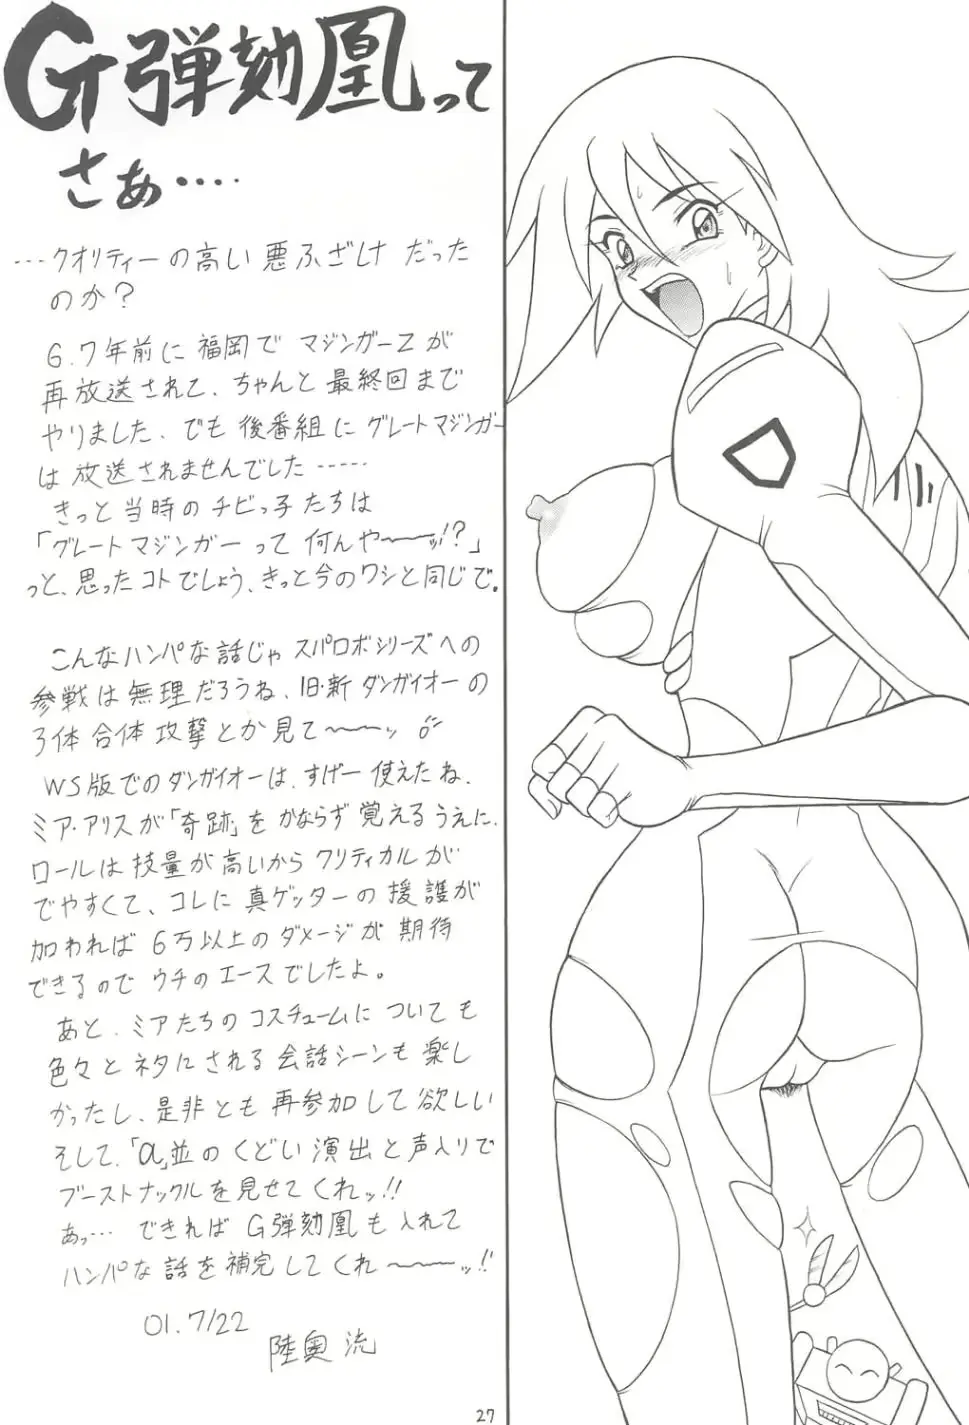 G弾劾凰って
さぁ‥‥
…クオリティーの高い悪ふざけだった
のか?
6.7年前に福岡でマジンガーZが
再放送されて、ちゃんと最終回まで
やりました、でも後番組にグレートマジンガー
は放送されませんでした‥‥‥
きっと当時のチビっ子たちは
「グレートマジンガーって何んや〜〜ッ!?」
っと、思ったコトでしょう、きっと今のワシと同じで。
こんなハンパな話じゃスパロボシリーズへの
参戦は無理だろうね、旧・新ダンガイオーの
3体合体攻撃とか見て〜〜ッ
WS版でのダンガイオーは、すげー使えたね、
ミア・アリスが「奇跡」をかならず覚えるうえに、
ロールは技量が高いからクリティカルが
でやすくて、コレに真ゲッターの援護が
加われば6万以上のダメージが期待
できるのでウチのエースでしたよ。
あと、ミアたちのコスチュームについても
色々とネタにされる会話シーンも楽し
かったし、是非とも再参加して欲しい
そして、「α」並のくどい演出と声入りで
ブーストナックルを見せてくれッ!!
あっ… できればG弾劾凰も入れて
ハンパな話を補完してくれ〜〜ッ!!
01.7/22
陸奥 流
27